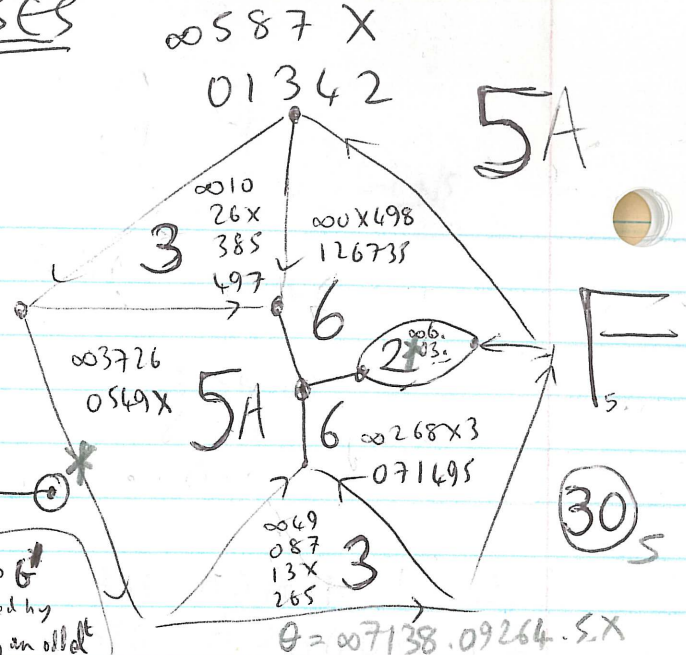 ∞587X
01342
5A
∞010
26X
385
497
3
∞0X498
126735
6
∞6.
03.
2
F
5.
∞3726
0549X
5A
6
∞268X3
071495
30
5
∞49
087
13X
265
3
ed by
θ = ∞7138.09264.5.X